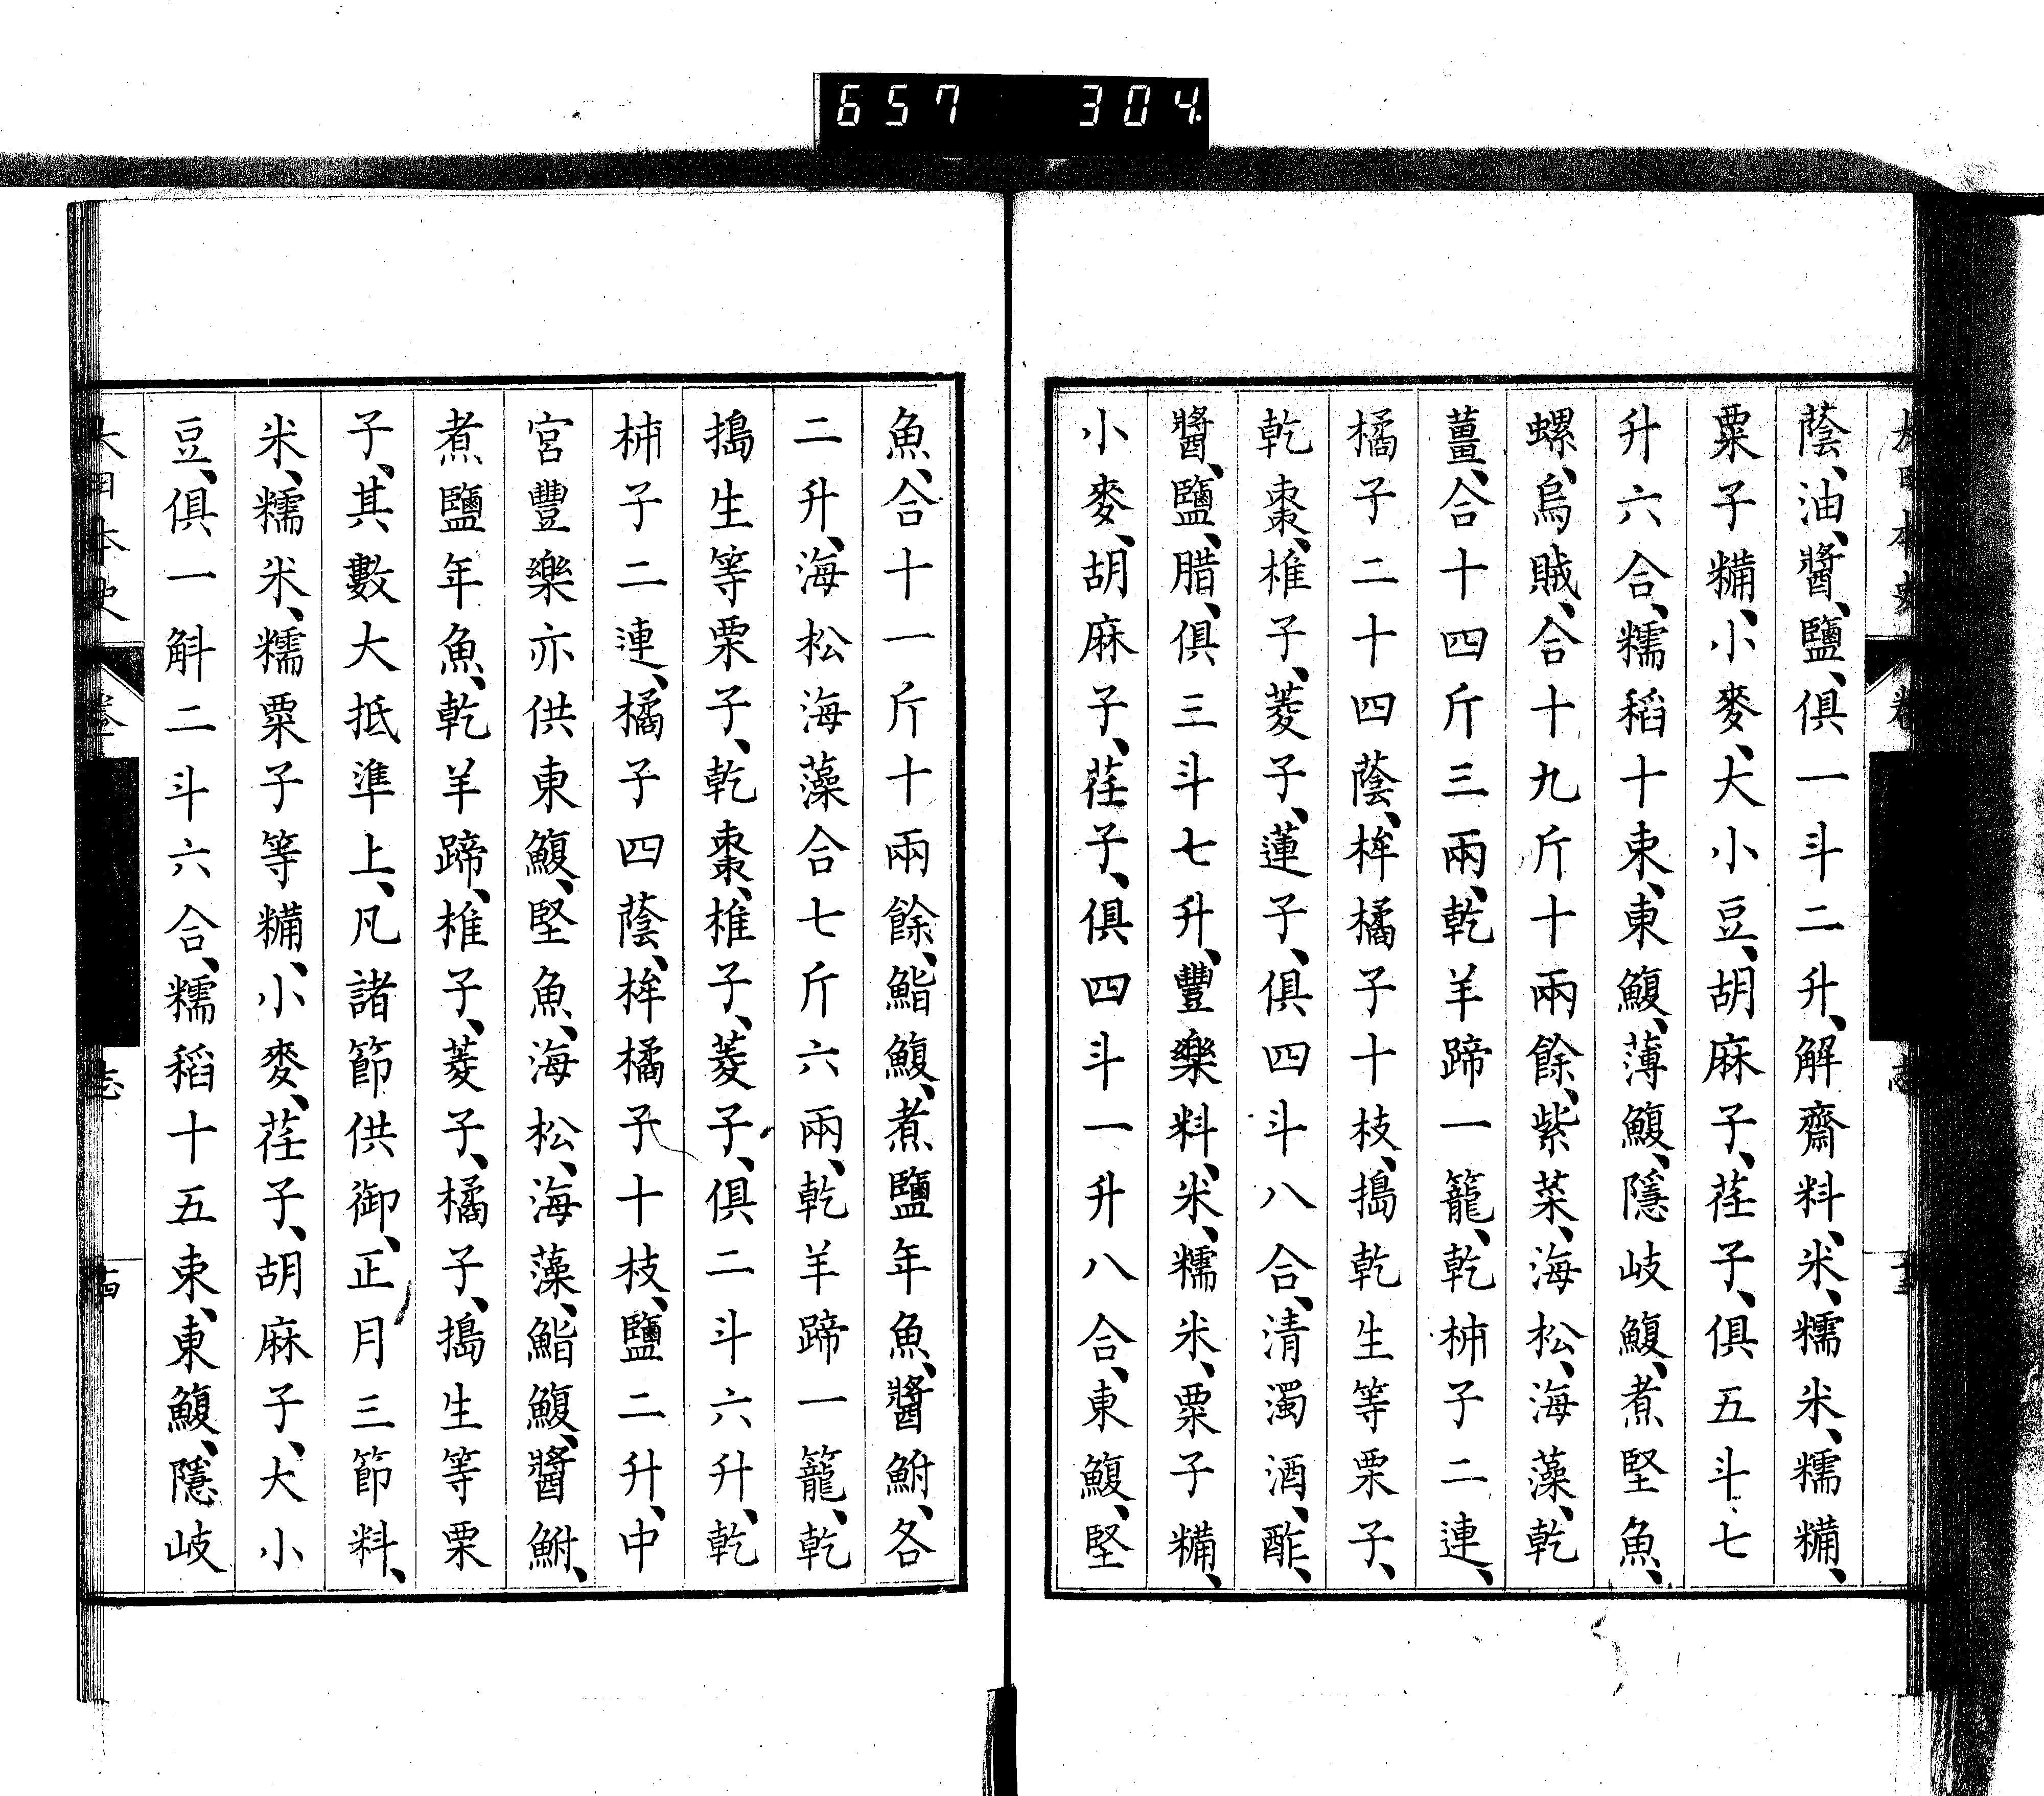 657 304
蔭、油、醬、鹽、俱一斗二升、解齋料、米、糯米、糯糒、
粟子糒、小麥、大小豆、胡麻子、荏子、俱五斗七
升六合、糯稻十束、東鰒、薄鰒、隱岐鰒、煮堅魚、
螺、烏賊、合十九斤十兩餘、紫菜、海松、海藻、乾
薑、合十四斤三兩、乾羊蹄一籠、乾柿子二連、
橘子二十四蔭、桙橘子十枝、搗乾生等栗子、
乾棗、椎子、菱子、蓮子、俱四斗八合、清濁酒、酢、
醬、鹽、腊、俱三斗七升、豐樂料、米、糯米、粟子糒、
小麥、胡麻子、荏子、俱四斗一升八合、東鰒、堅
魚、合十一斤十兩餘、鮨鰒、煮鹽年魚、醬鮒、各
二升、海松海藻合七斤六兩、乾羊蹄一籠、乾
搗生等栗子、乾棗、椎子、菱子、俱二斗六升、乾
柿子二連、橘子四蔭、桙橘子十枝、鹽二升、中
宮豐樂亦供東鰒、堅魚、海松、海藻、鮨鰒、醬鮒、
煮鹽年魚、乾羊蹄、椎子、菱子、橘子、搗生等栗
子、其數大抵準上、凡諸節供御、正月三節料、
米、糯米、糯粟子等糒、小麥、荏子、胡麻子、大小
豆、俱一斛二斗六合、糯稻十五束、東鰒、隱岐
大日本史 卷 志